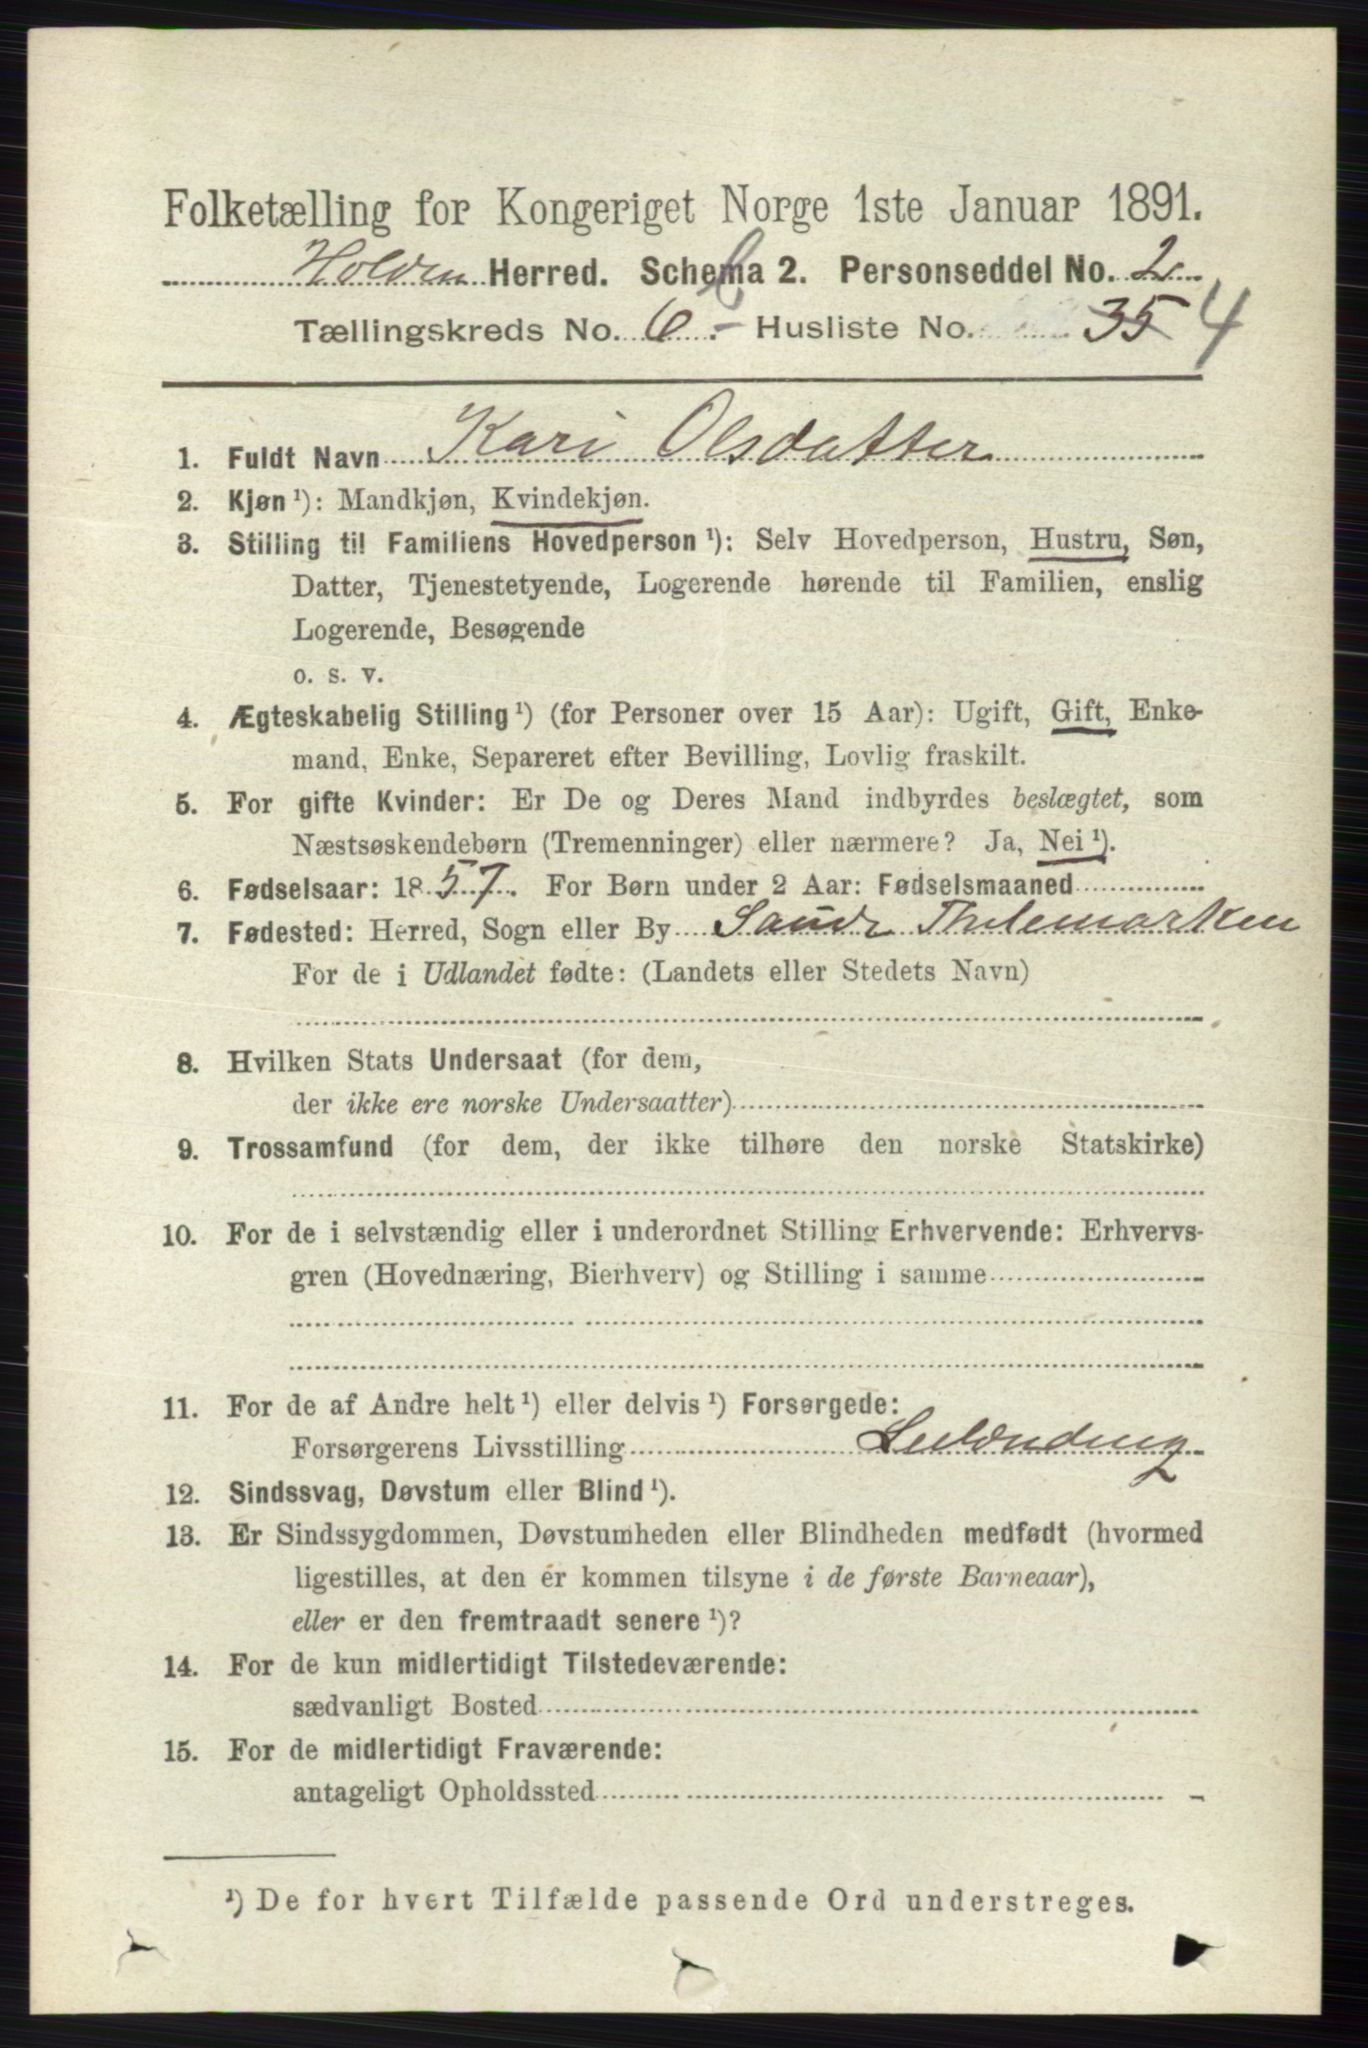 Folketælling for Kongeriget Norge 1ste Januar 1891.
Holden Herred. Schema 2. Personseddel No. 2
Tællingskreds No. 6 - Husliste No. 35 4
1. Fuldt Navn Kari Olsdatter
2. Kjøn ¹): Mandkjøn, Kvindekjøn.
3. Stilling til Familiens Hovedperson ¹): Selv Hovedperson, Hustru, Søn,
Datter, Tjenestetyende, Logerende hørende til Familien, enslig
Logerende, Besøgende
o. s. v.
4. Ægteskabelig Stilling ¹) (for Personer over 15 Aar): Ugift, Gift, Enke-
mand, Enke, Separeret efter Bevilling, Lovlig fraskilt.
5. For gifte Kvinder: Er De og Deres Mand indbyrdes beslægtet, som
Næstsøskendebørn (Tremenninger) eller nærmere? Ja, Nei ¹).
6. Fødselsaar: 1857. For Børn under 2 Aar: Fødselsmaaned
7. Fødested: Herred, Sogn eller By Saude Thelemarken
For de i Udlandet fødte: (Landets eller Stedets Navn)
8. Hvilken Stats Undersaat (for dem,
der ikke ere norske Undersaatter)
9. Trossamfund (for dem, der ikke tilhøre den norske Statskirke)
10. For de i selvstændig eller i underordnet Stilling Erhvervende: Erhvervs-
gren (Hovednæring, Bierhverv) og Stilling i samme
11. For de af Andre helt ¹) eller delvis ¹) Forsørgede:
Forsørgerens Livsstilling Leilænding
12. Sindssvag, Døvstum eller Blind ¹).
13. Er Sindssygdommen, Døvstumheden eller Blindheden medfødt (hvormed
ligestilles, at den ér kommen tilsyne i de første Barneaar),
eller er den fremtraadt senere ¹)?
14. For de kun midlertidigt Tilstedeværende:
sædvanligt Bosted
15. For de midlertidigt Fraværende:
antageligt Opholdssted
¹) De for hvert Tilfælde passende Ord understreges.